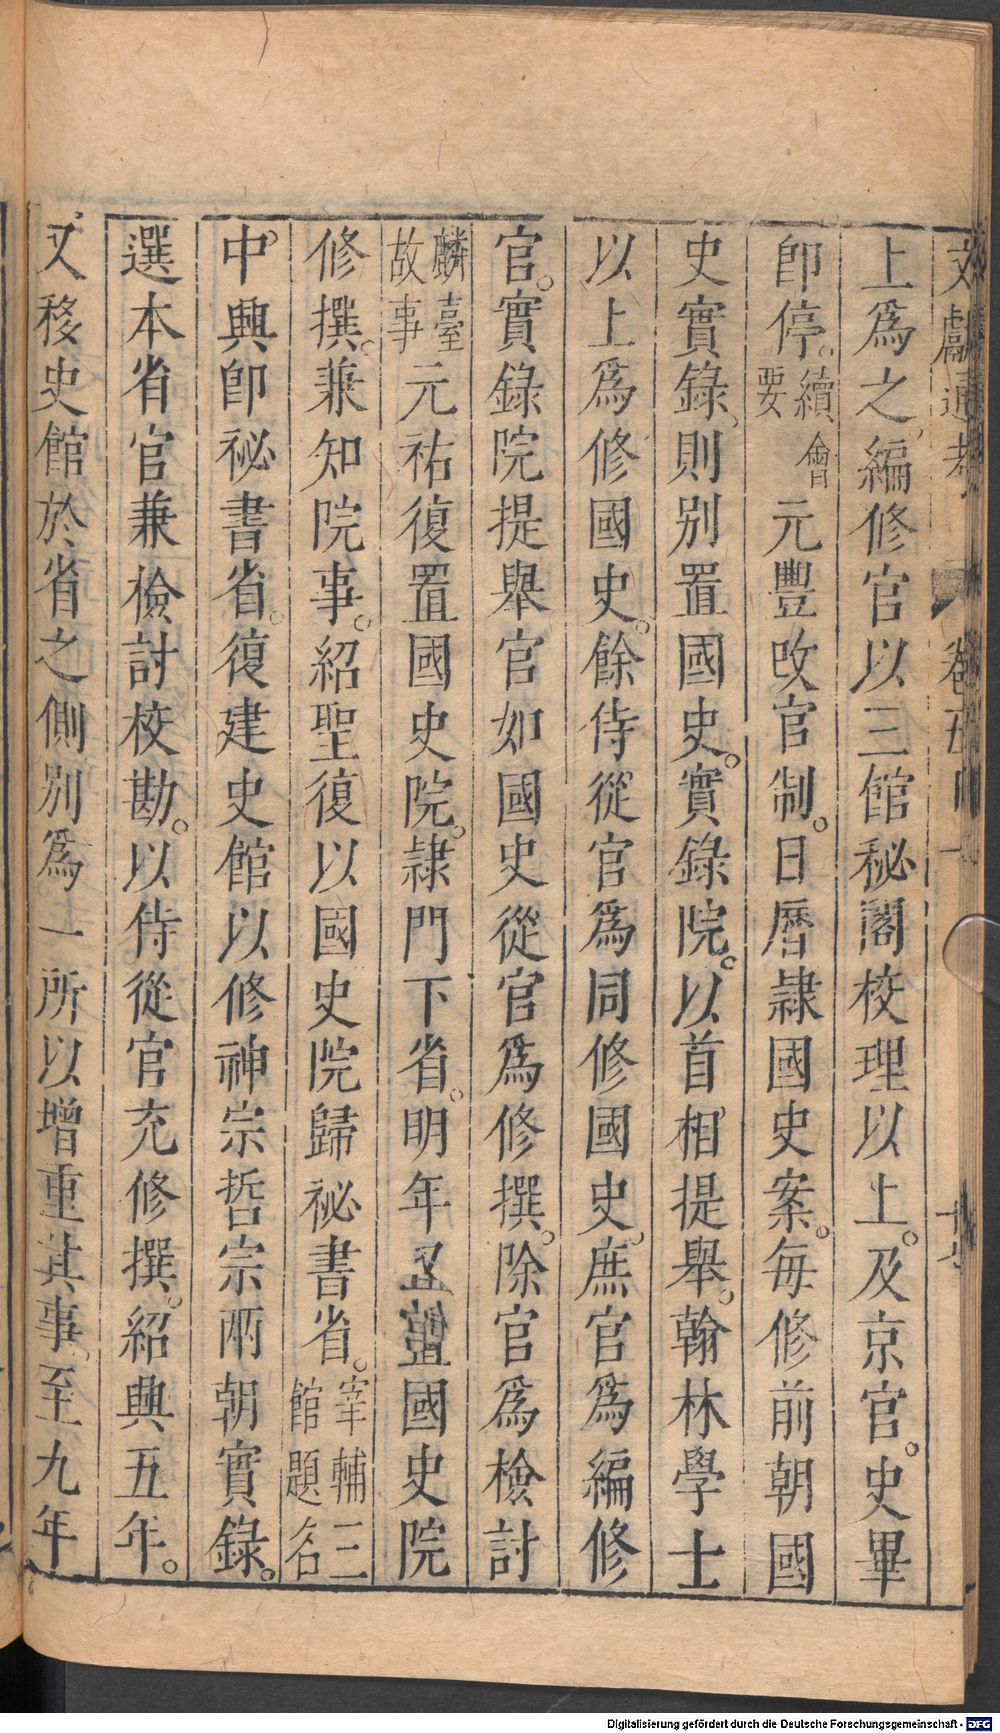 上爲之編修官以三館秘閣校理以上。及京官。史畢
卽停。續會要元豐改官制。日曆隷國史案。每修前朝國
史實錄則別置國史。實錄院。以首相提舉。翰林學士
以上爲修國史。餘侍從官爲同修國史。庶官爲編修
官。實錄院提舉官如國史從官爲修撰。除官爲檢討
麟臺故事元祐復置國史院。隷門下省。明年國史院
修撰。兼知院事。紹聖復以國史院歸祕書省。宰輔三館題名
中興卽祕書省。復建史館以修神宗哲宗兩朝實錄。
選本省官兼檢討校勘。以侍從官充修撰。紹興五年。
又移史館於省之側別爲一所以增重其事。至九年
文獻通考 卷五
Digitalisierung gefördert durch die Deutsche Forschungsgemeinschaft - DFG